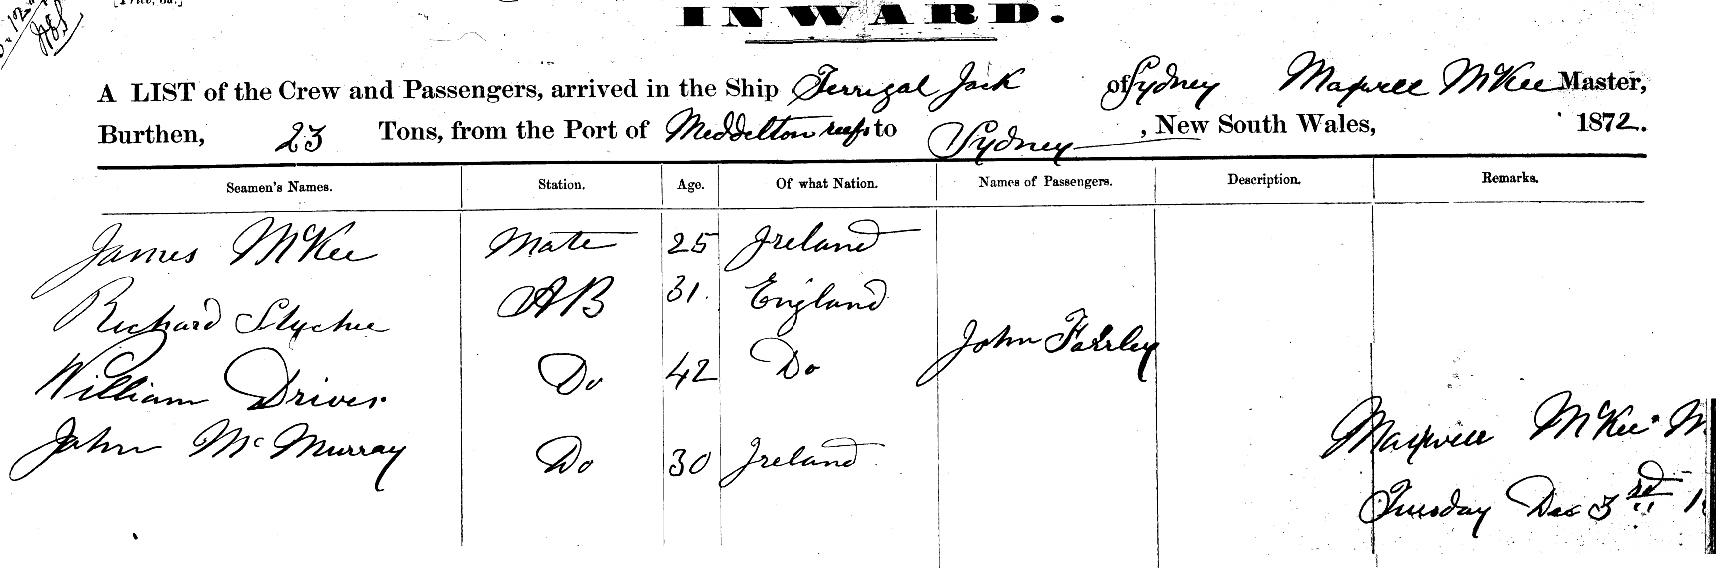 INWARD.
A LIST of the Crew and Passengers, arrived in the Ship Terrigal Jack of Sydney Maxwell McKee Master,
Burthen, 23 Tons, from the Port of Meddelton reefs to Sydney, New South Wales, 1872.
Seamen's Names. Station. Age. Of what Nation. Names of Passengers. Description. Remarks.
James McKee Mate 25 Ireland
Richard AB 31. England
John Farrley
William Driver Do 42 Do
John McMurray Do 30 Ireland
Maxwell McKee M
Tuesday Dec 3rd 1